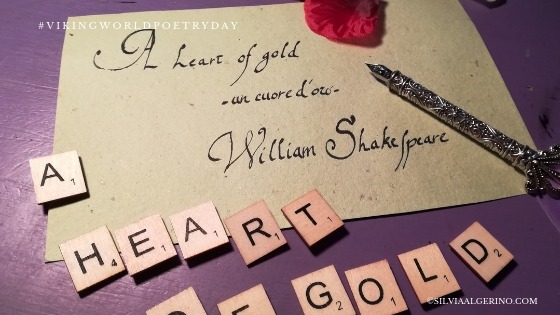 #VIKINGWORLDPOETRYDAY
A heart of gold
-un cuore d'oro-
William Shakespeare
A1
H4 E1 A1 R1 T1
OF G2 O1 L1 D2
©SILVIAALGERINO.COM